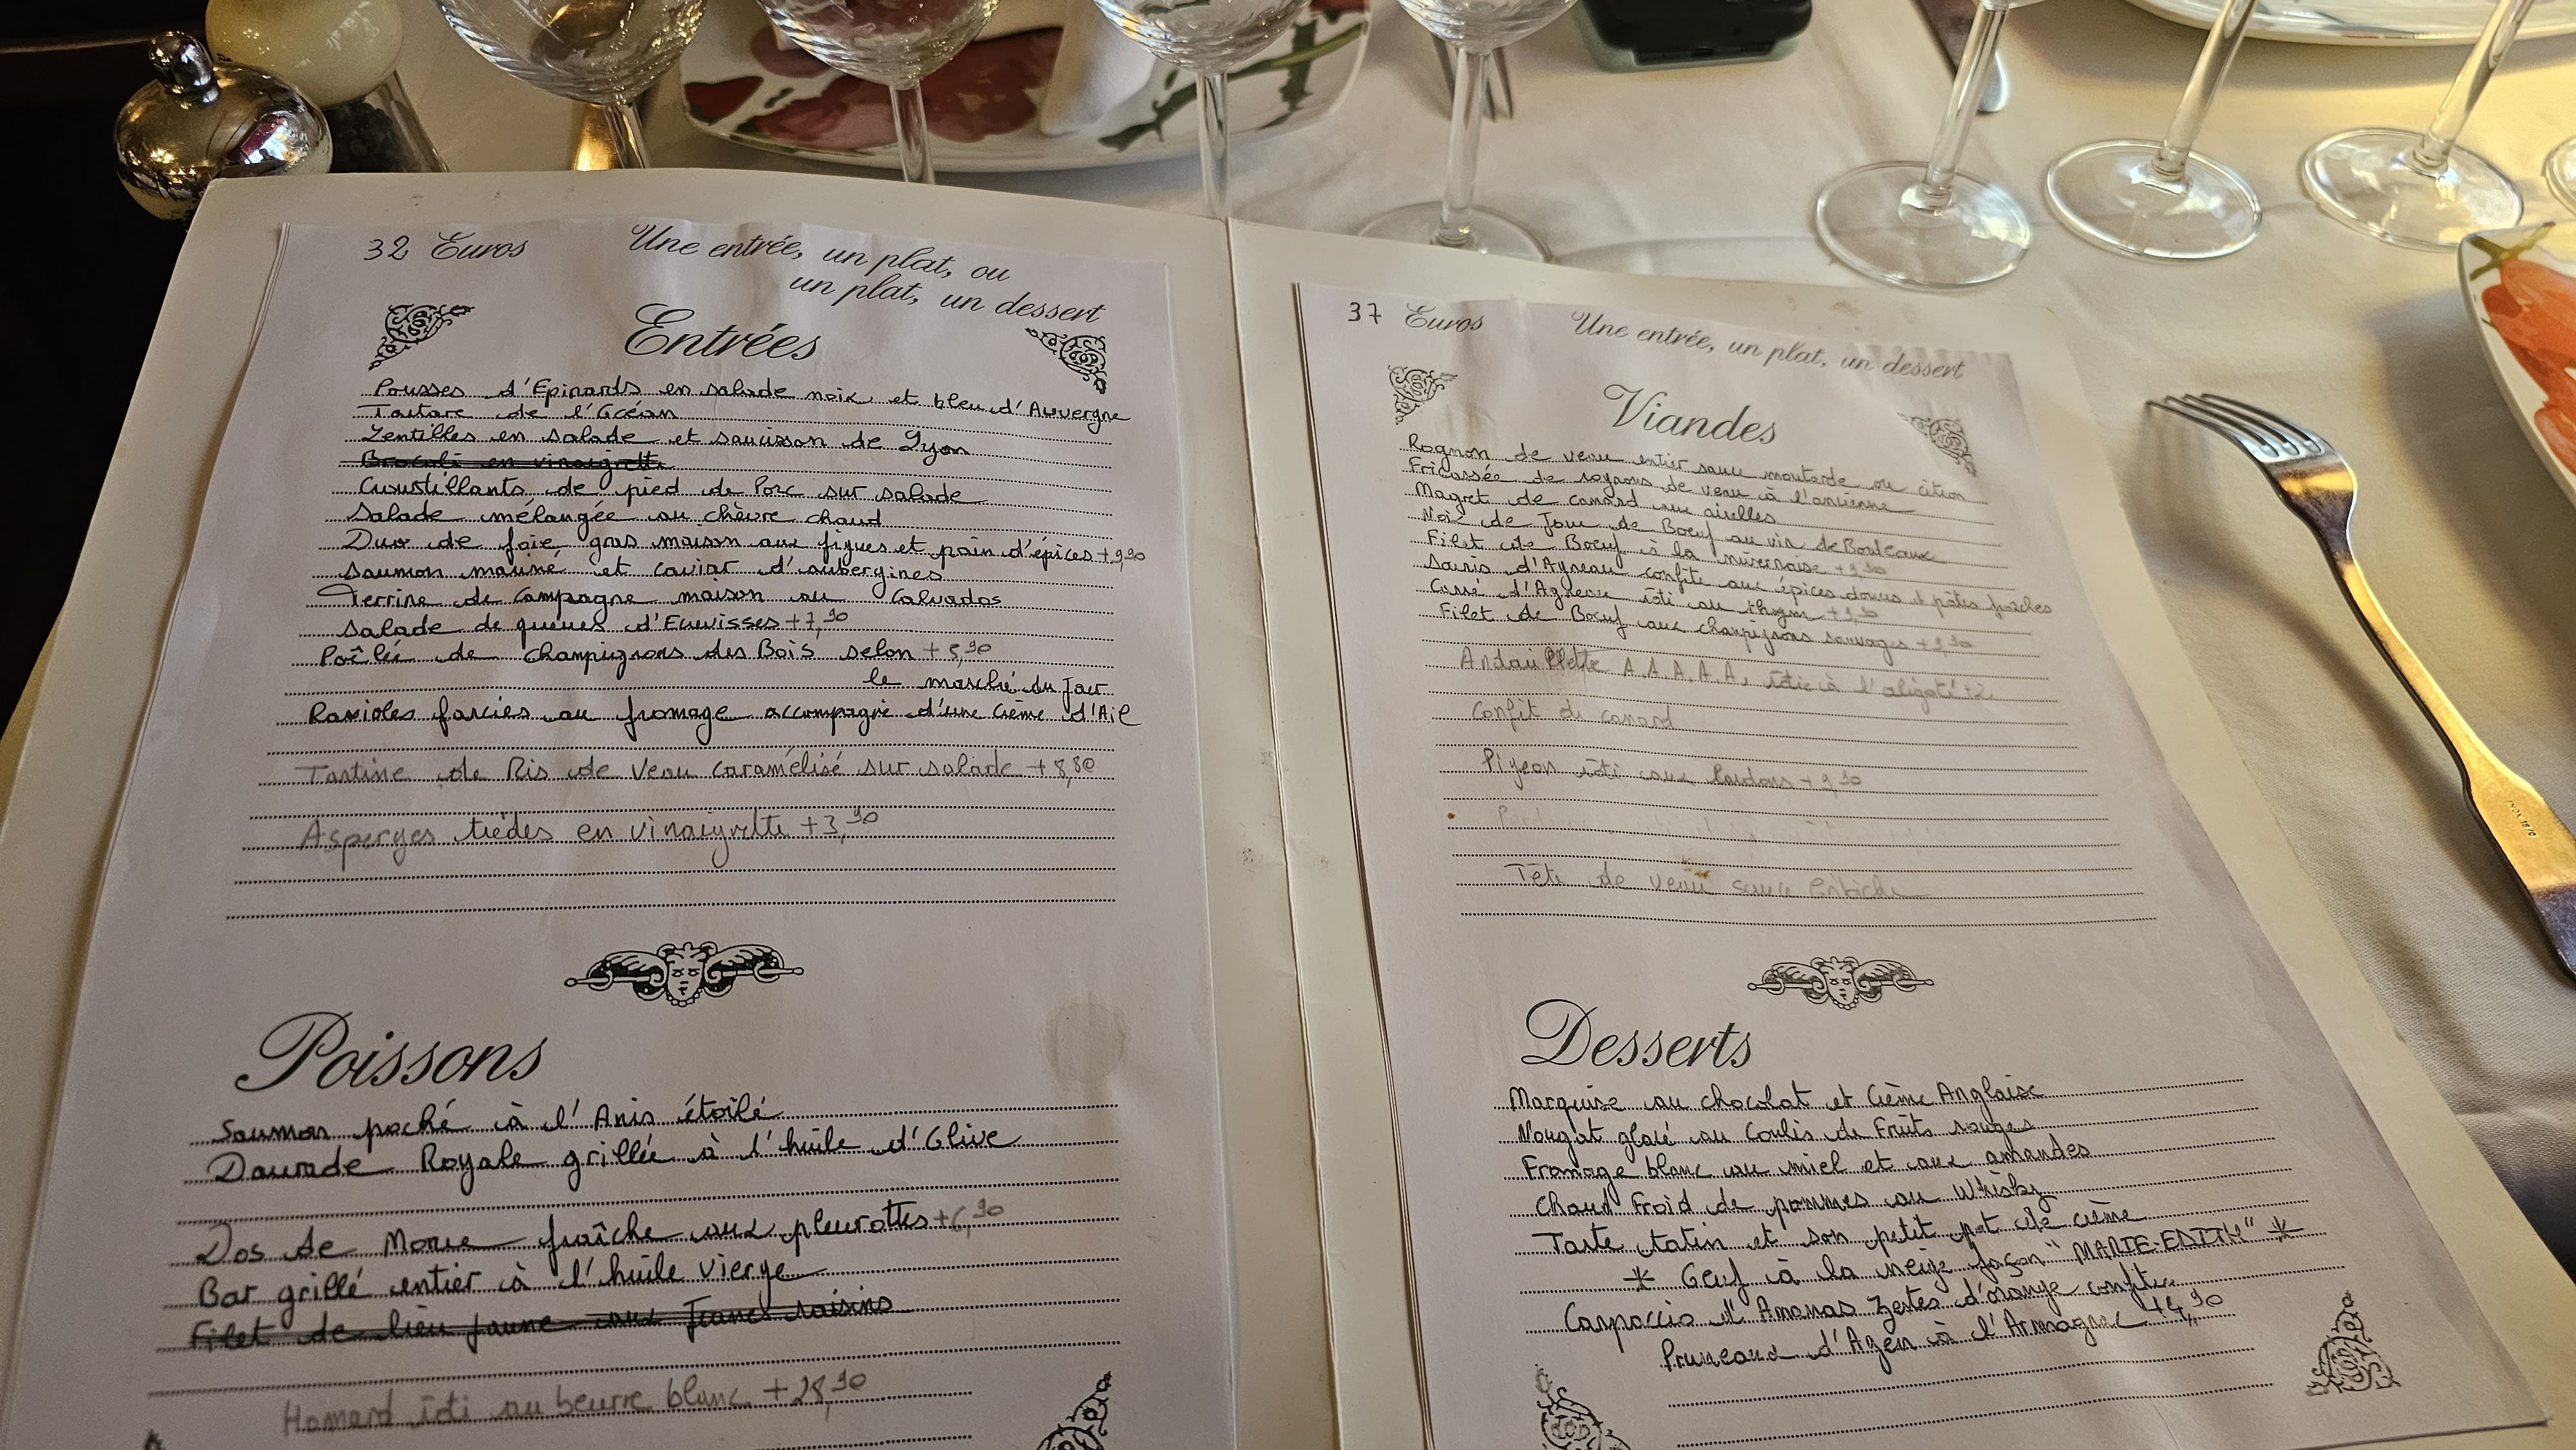 32 Euros
Une entrée, un plat, ou
un plat, un dessert
Entrées
Pousses d'Epinards en salade noix et bleu d'Auvergne
Tartare de l'Océan
Lentilles en salade et saucisson de Lyon
Brocoli en vinaigrette
Croustillants de pied de Porc sur salade
Salade mélangée au chèvre chaud
Duo de foie gras maison aux figues et pain d'épices +9,90
Saumon mariné et caviar d'aubergines
Terrine de Campagne maison au Calvados
Salade de queues d'Ecrevisses +7,90
Poêlée de champignons des Bois selon +5,90
le marché du Jour
Ravioles farcies au fromage accompagné d'une Crème d'Ail
Tartine de Ris de Veau caramélisé sur salade +8,80
Asperges tièdes en vinaigrette +3,90
Poissons
Saumon poché à l'Anis étoilé
Daurade Royale grillée à l'huile d'Olive
Dos de Morue fraîche aux pleurottes +6,90
Bar grillé entier à l'huile vierge
Filet de lieu jaune aux Francs raisins
Homard rôti au beurre blanc +28,90
37 Euros
Une entrée, un plat, un dessert
Viandes
Rognon de veau entier sauce moutarde ou citron
Fricassée de rognons de veau à l'ancienne
Magret de canard aux airelles
Noix de Joue de Boeuf au vin de Bordeaux
Filet de Boeuf à la nivernaise +9,90
Souris d'Agneau confite aux épices douces et pâtes fraîches
Carré d'Agneau rôti au thym +9,90
Filet de Boeuf aux champignons sauvages +9,90
Andouillette A.A.A.A.A. rôtie à l'aligoté +2
Confit de canard
Pigeon rôti aux lardons +9,90
Tête de veau sauce
Desserts
Marquise au chocolat et Crème Anglaise
Nougat glacé au Coulis de Fruits rouges
Fromage blanc au miel et aux amandes
Chaud Froid de pommes au Whisky
Tarte tatin et son petit pot de crème
* Oeuf à la neige façon "MARIE-EDITH" *
Carpaccio d'Ananas Zestes d'orange confits
Pruneaux d'Agen à l'Armagnac +4,90